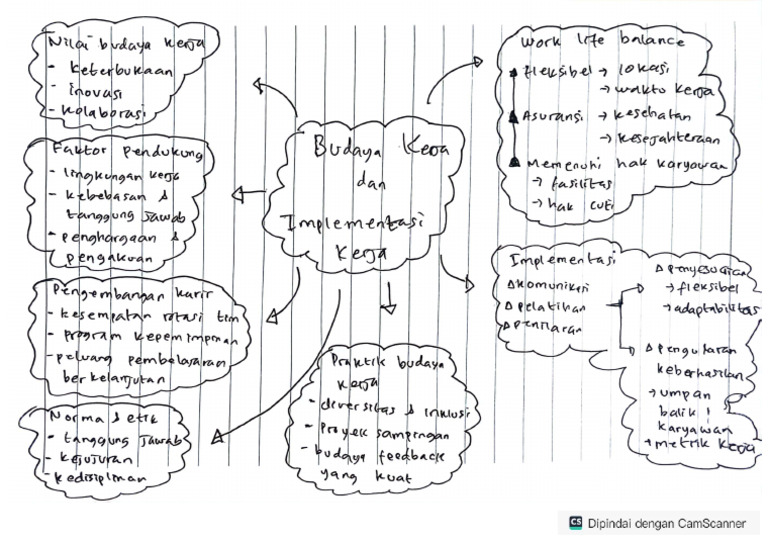 Nilai budaya kerja
- keterbukaan
- inovasi
- kolaborasi
Faktor pendukung
- lingkungan kerja
- kebebasan &
tanggung jawab
- penghargaan &
pengakuan
Pengembangan karir
- kesempatan rotasi tim
- program kepemimpinan
- peluang pembelajaran
berkelanjutan
Norma & etik
- tanggung jawab
- kejujuran
- kedisiplinan
Budaya Kerja
dan
Implementasi
Kerja
Praktik budaya
kerja
- diversitas & inklusi
- proyek sampingan
- budaya feedback
yang kuat
Work life balance
▲ Fleksibel → lokasi
→ waktu kerja
▲ Asuransi → kesehatan
→ kesejahteraan
▲ Memenuhi hak karyawan
→ fasilitas
→ hak cuti
Implementasi
△ komunikasi
△ pelatihan
△ penilaian
△ penyesuaian
→ fleksibel
→ adaptabilitas
△ pengukuran
keberhasilan
→ umpan
balik
karyawan
→ metrik kerja
CS Dipindai dengan CamScanner